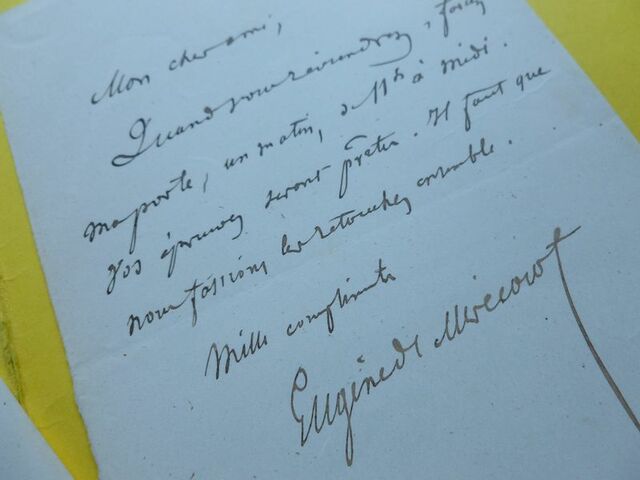 Mon cher ami,
Quand vous reviendrez, forcez
ma porte, un matin, de 11h à midi.
Vos épreuves seront prêtes. Il faut que
nous fassions les retouches ensemble.
Mille compliments
Eugène de Mirecourt